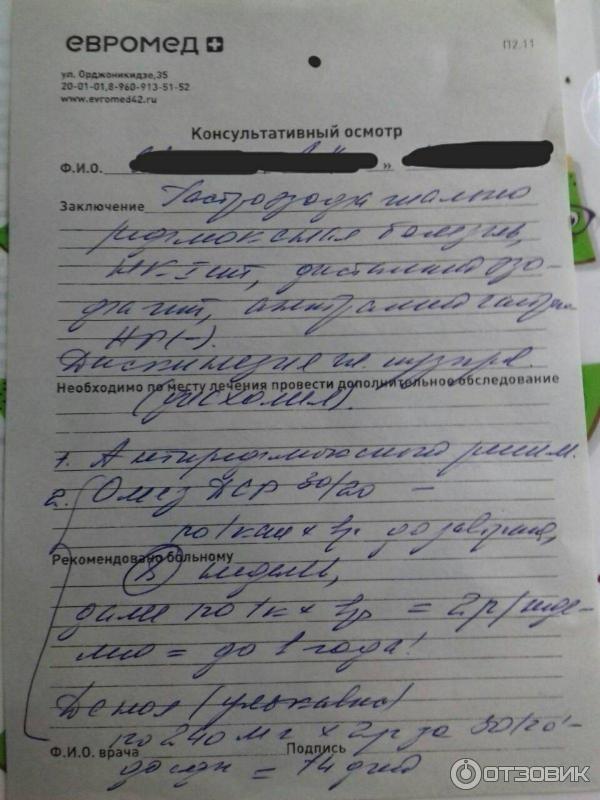 ЕВРОМЕД
П2.11
ул. Орджоникидзе,35
20-01-01,8-960-913-51-52
www.evromed42.ru
Консультативный осмотр
Ф.И.О. »
Заключение Гастроэзофагиально
рефлюксная болезнь,
НК-I ст, дистальный эзо-
фагит, антральный гастрит
HP(-).
Дискинезия ж. пузыря.
Необходимо по месту лечения провести дополнительное обследование
(дисхолия).
1. Антирефлюксного режим.
2. Омез ДСР 30/20 -
по 1 кап х 1р до завтрака,
Рекомендовано больному
недель,
далее по 1к х 1р = 2р/неде-
лю = до 1 года!
Де нол (улькавис)
по 240 мг х 2р за 30/
Ф.И.О. врача Подпись
до еды = 14 дней
ОТЗОВИК